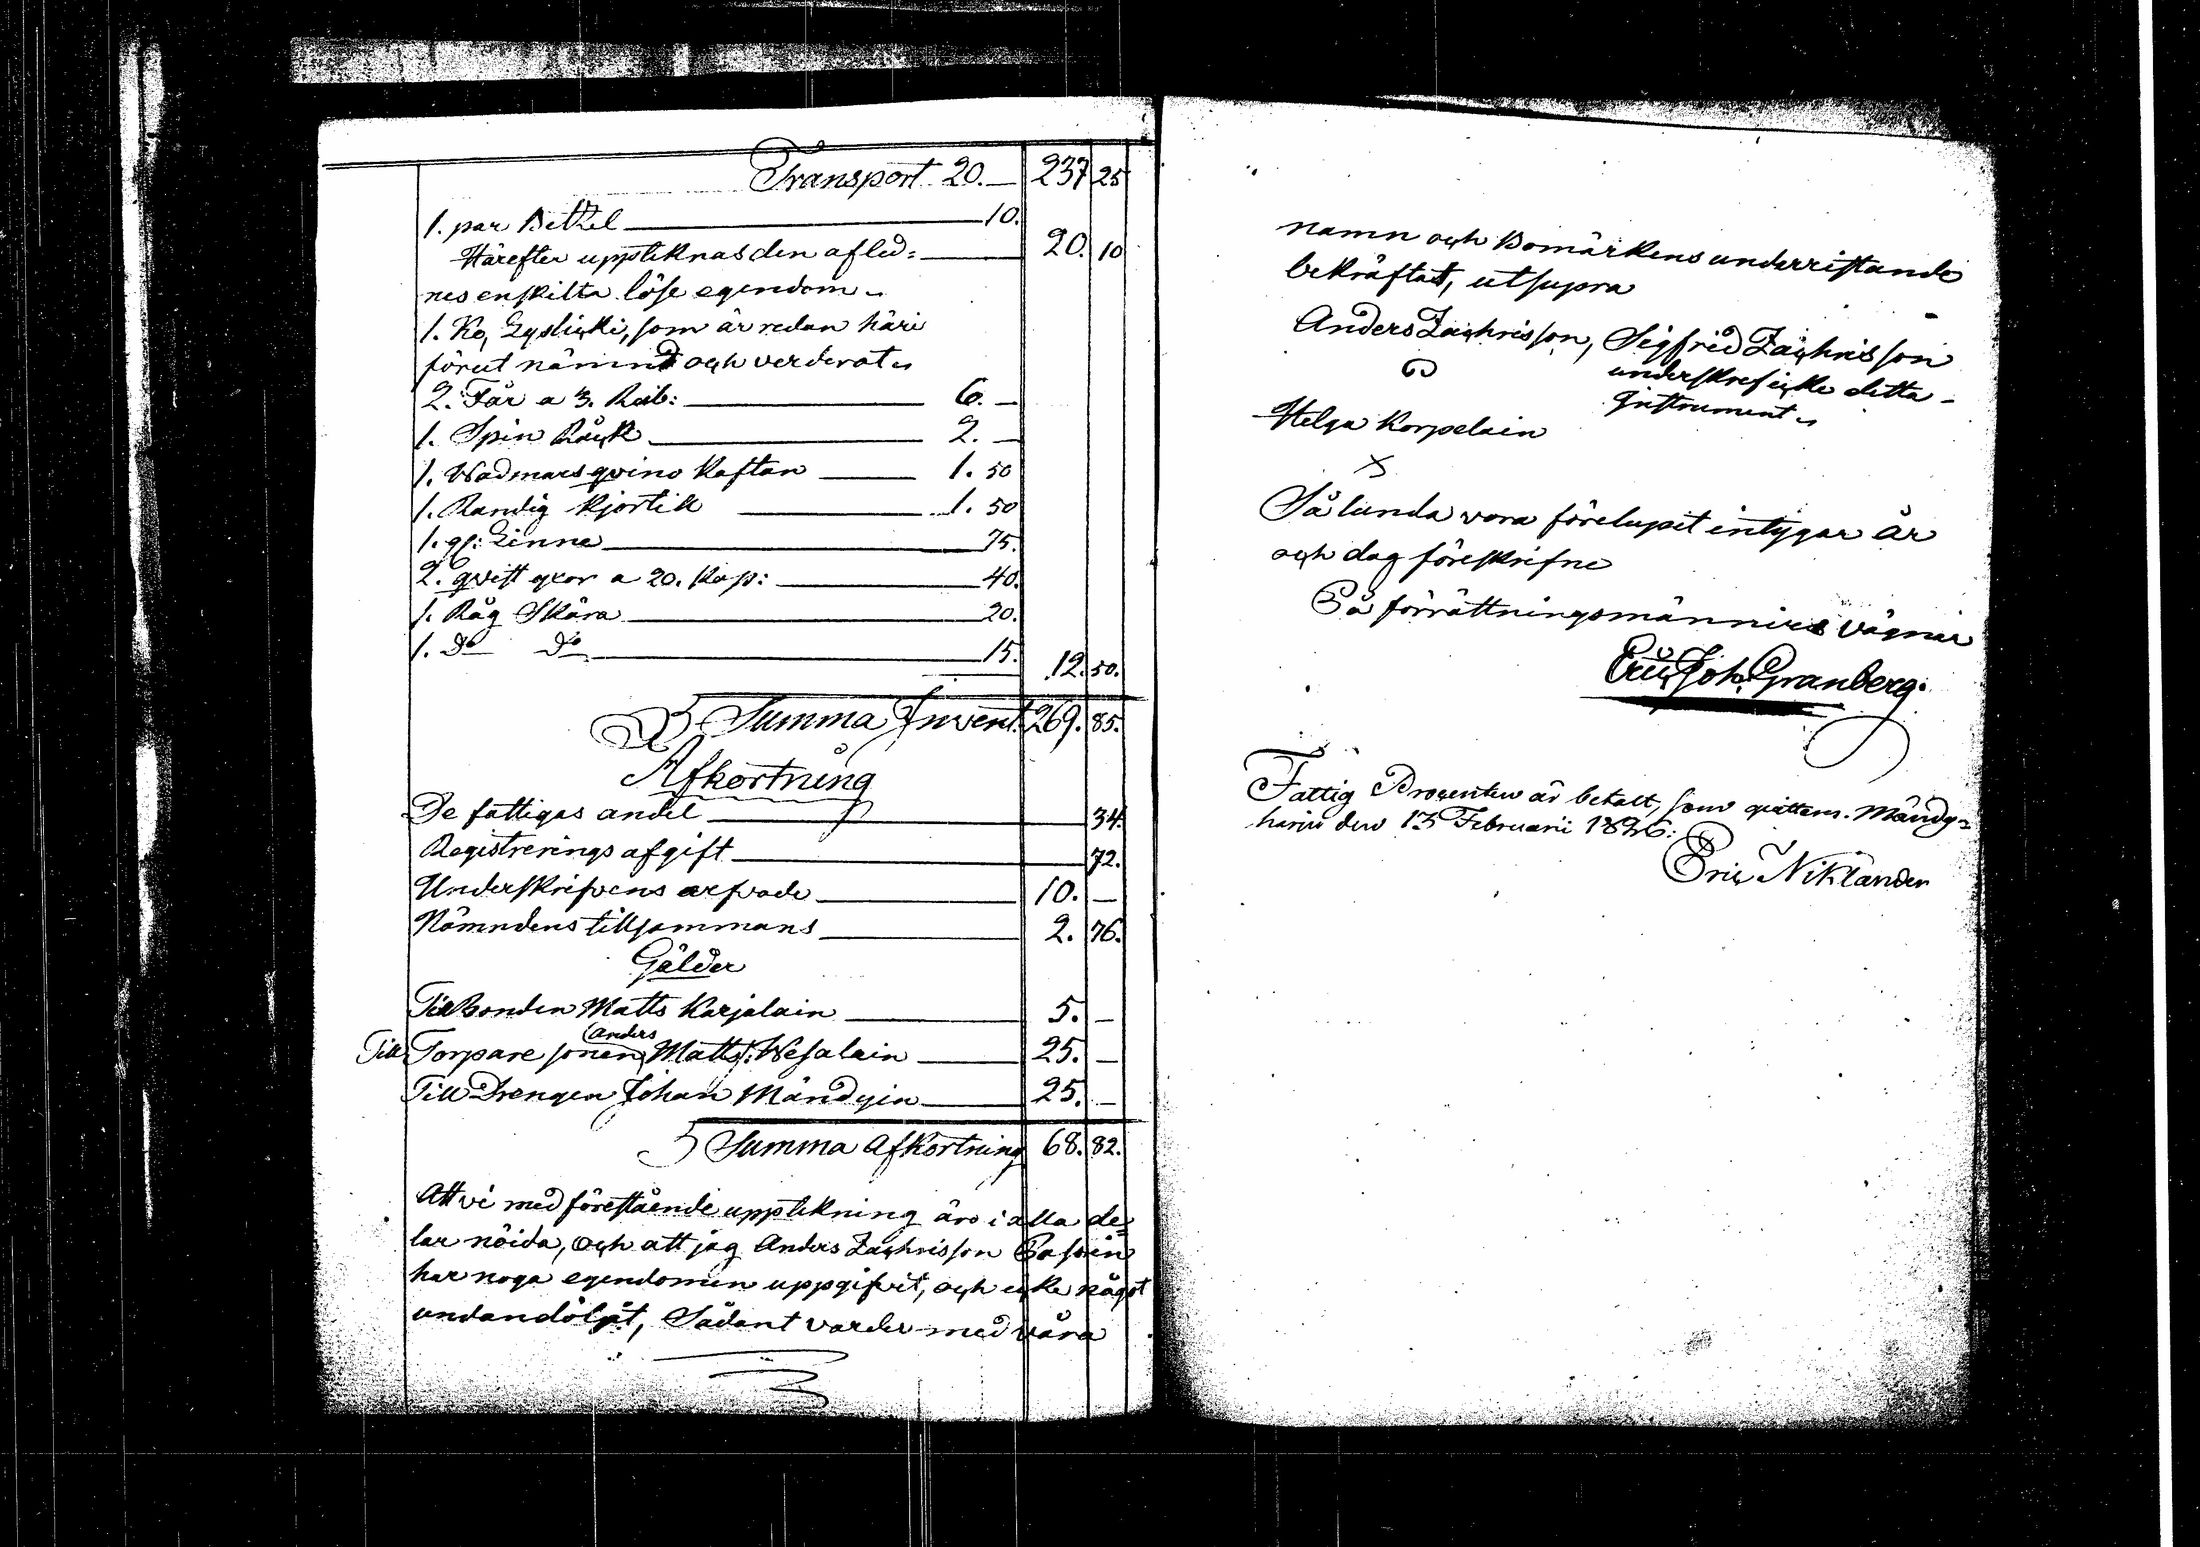 Transport 20.— 237 25
1. par Bethel 10.
Härefter uppteknas den afled= 20. 10
nes enskilta löse egendom
1. Ko, Lyslicki, som är redan häri
förut nämnd och verderat
2. Får a 3. Rub: 6. —
1. Spin Råck 2. —
1. Wadmars qvins Kaftan 1. 50
1. Randig Kjortil 1. 50
1. gl: Linne 75.
2. qvist yxor a 20. Kop: 40.
1. Råg Skära 20.
1. Do Do 15. 12. 50.
Summa Invent. 269. 85.
Afkortning
De fattigas andel 34.
Registrerings afgift 72.
Underskrifvens arfvode 10. —
Nämndens tillsammans 2. 76.
Gälder
Till Bonden Matts Karjalain 5. —
Till Torpare sonen Anders Matts: Wesalain 25. —
Till Drengen Johan Mändyin 25. —
Summa Afkortning 68. 82.
Att vi med förestående upptekning äro i alla de=
lar nöida, och att jag Anders Zachrisson Pasoin
har noga egendomen uppgifvit, och icke något
undandöljit, Sådant varder med våra
namn och Bomärkens underristande
bekräftat, utsupra
Anders Zachrisson, Sigfrid Zachrisson
underskref icke detta
Instrument
Helga Korpelain
Så lunda vara förelupit intygar år
och dag föreskrifne
På förrättningsmännens vägnar
Eric Joh. Granberg.
Fattig Procenten är betalt, som qvitteras. Mändy=
harju den 13 Februarii 1836:
Eric Niklander